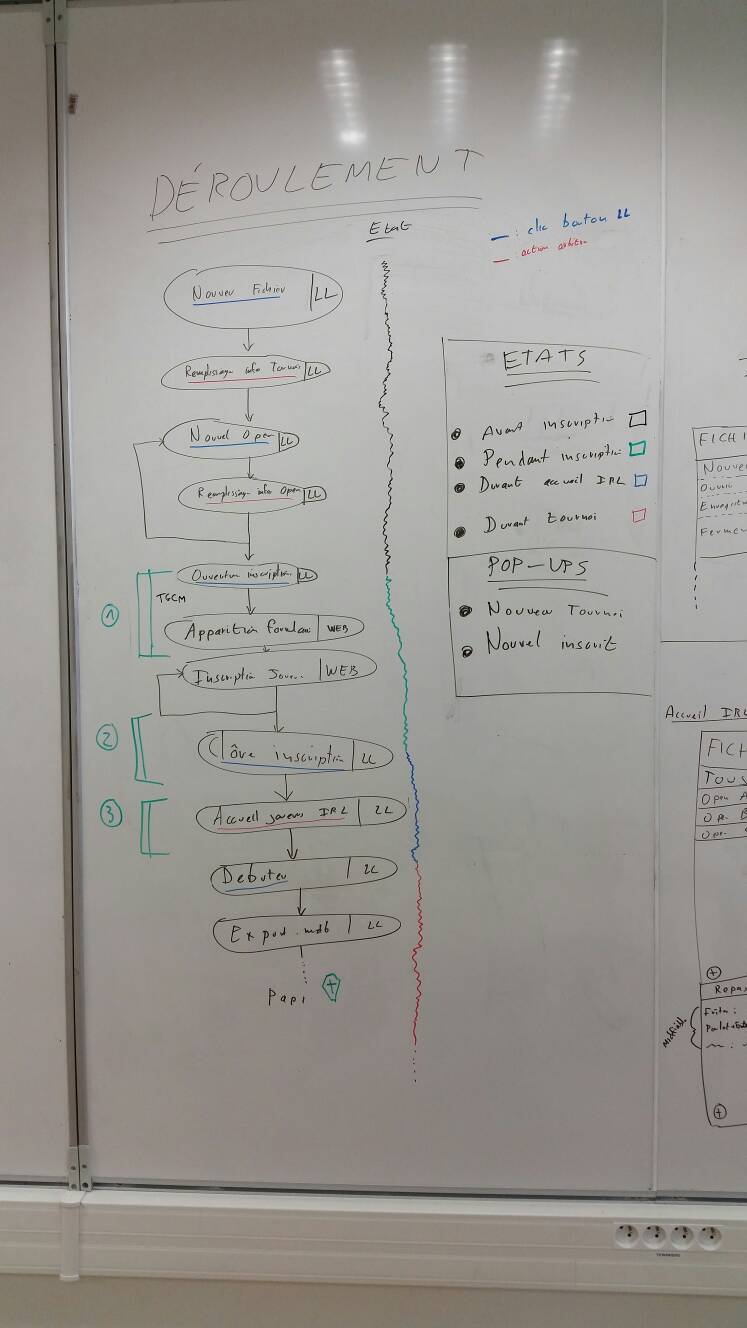 DÉROULEMENT
Etat
: clic bouton LL
: action
Nouveau Fichier LL
Remplissage info Tournoi LL
Nouvel Open LL
Remplissage info Open LL
Ouverture inscription LL
1
TGCM
Apparition formulaire WEB
Inscription Joueur WEB
2
Clôre inscription LL
3
Accueil joueurs IRL LL
Debuter LL
Export .mdb LL
Papi +
ETATS
Avant inscription
Pendant inscription
Durant accueil IRL
Durant tournoi
POP-UPS
Nouveau Tournoi
Nouvel inscrit
FICHI
Nouve
Ouvrir
Enregistr
Fermer
Accueil IRL
FICH
TOUS
Open A
Open B
Open
+
Repas
+